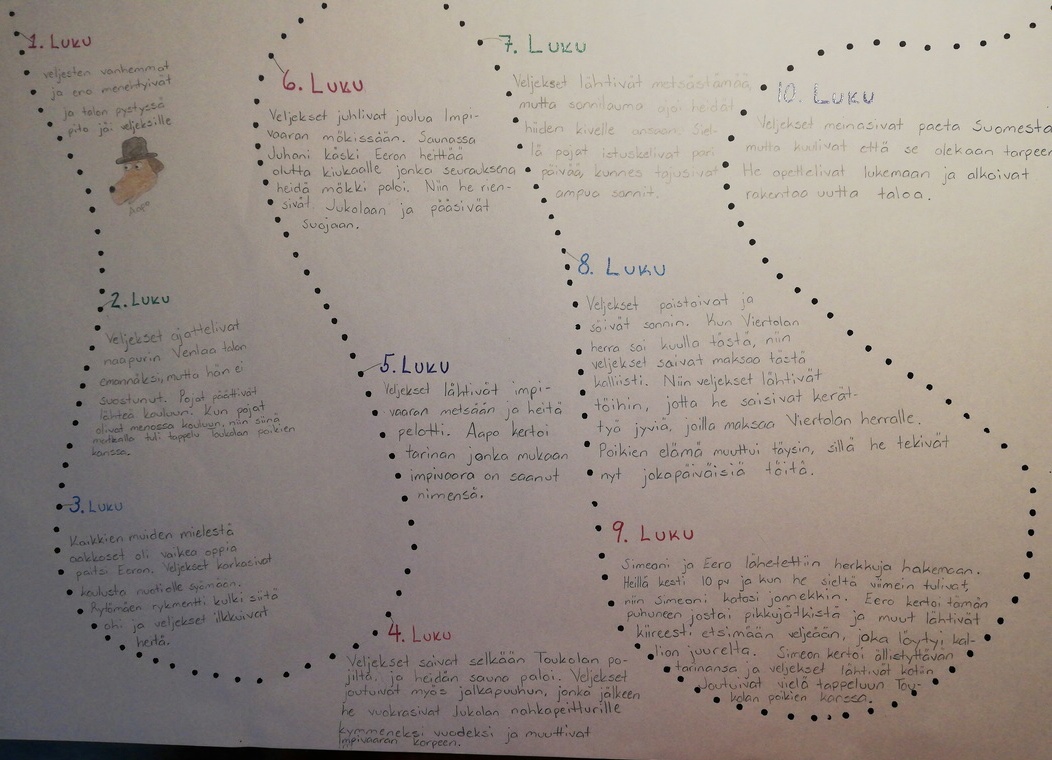 1. Luku
veljesten vanhemmat
ja eno menehtyivät
ja talon pystyssä
pito jäi veljeksille
Aapo
2. Luku
Veljekset ajattelivat
naapurin Venlaa talon
emännäksi, mutta hän ei
suostunut. Pojat päättivät
lähteä kouluun. Kun pojat
olivat menossa kouluun, niin siinä
matkalla tuli tappelu Toukolan poikien
kanssa.
3. Luku
Kaikkien muiden mielestä
aakkoset oli vaikea oppia
paitsi Eeron. Veljekset karkasivat
koulusta nuotiolle syömään.
Rytömäen rykmentti kulki siitä
ohi ja veljekset ilkkuivat
heitä.
4. Luku
Veljekset saivat selkään Toukolan po-
jilta, ja heidän sauna paloi. Veljekset
joutuivat myös jalkapuuhun, jonka jälkeen
he vuokrasivat Jukolan nahkapeitturille
kymmeneksi vuodeksi ja muuttivat
Impivaaran korpeen.
5. Luku
Veljekset lähtivät impi-
vaaran metsään ja heitä
pelotti. Aapo kertoi
tarinan jonka mukaan
impivaara on saanut
nimensä.
6. Luku
Veljekset juhlivat joulua Impi-
vaaran mökissään. Saunassa
Juhani käski Eeron heittää
olutta kiukaalle jonka seurauksena
heidä mökki paloi. Niin he rien-
sivät Jukolaan ja pääsivät
suojaan.
7. Luku
Veljekset lähtivät metsästämää,
mutta sonnilauma ajoi heidät
hiiden kivelle ansaan. Siel-
lä pojat istuskelivat pari
päivää, kunnes tajusivat
ampua sonnit.
8. Luku
Veljekset paistoivat ja
söivät sonnin. Kun Viertolan
herra sai kuulla tästä, niin
veljekset saivat maksaa tästä
kalliisti. Niin veljekset lähtivät
töihin, jotta he saisivat kerät-
tyä jyviä, joilla maksaa Viertolan herralle.
Poikien elämä muuttui täysin, sillä he tekivät
nyt jokapäiväisiä töitä.
9. Luku
Simeoni ja Eero lähetettiin herkkuja hakemaan.
Heillä kesti 10 pv ja kun he sieltä viimein tulivat,
niin Simeoni katosi jonnekkin. Eero kertoi tämän
puhuneen jostai pikkujätkistä ja muut lähtivät
kiireesti etsimään veljeään, joka löytyi kal-
lion juurelta. Simeon kertoi ällistyttävän
tarinansa ja veljekset lähtivät kotiin
Joutuivat vielä tappeluun Tou-
kolan poikien kanssa.
10. Luku
Veljekset meinasivat paeta Suomesta
mutta kuulivat että se olekaan tarpeen
He opettelivat lukemaan ja alkoivat
rakentaa uutta taloa.